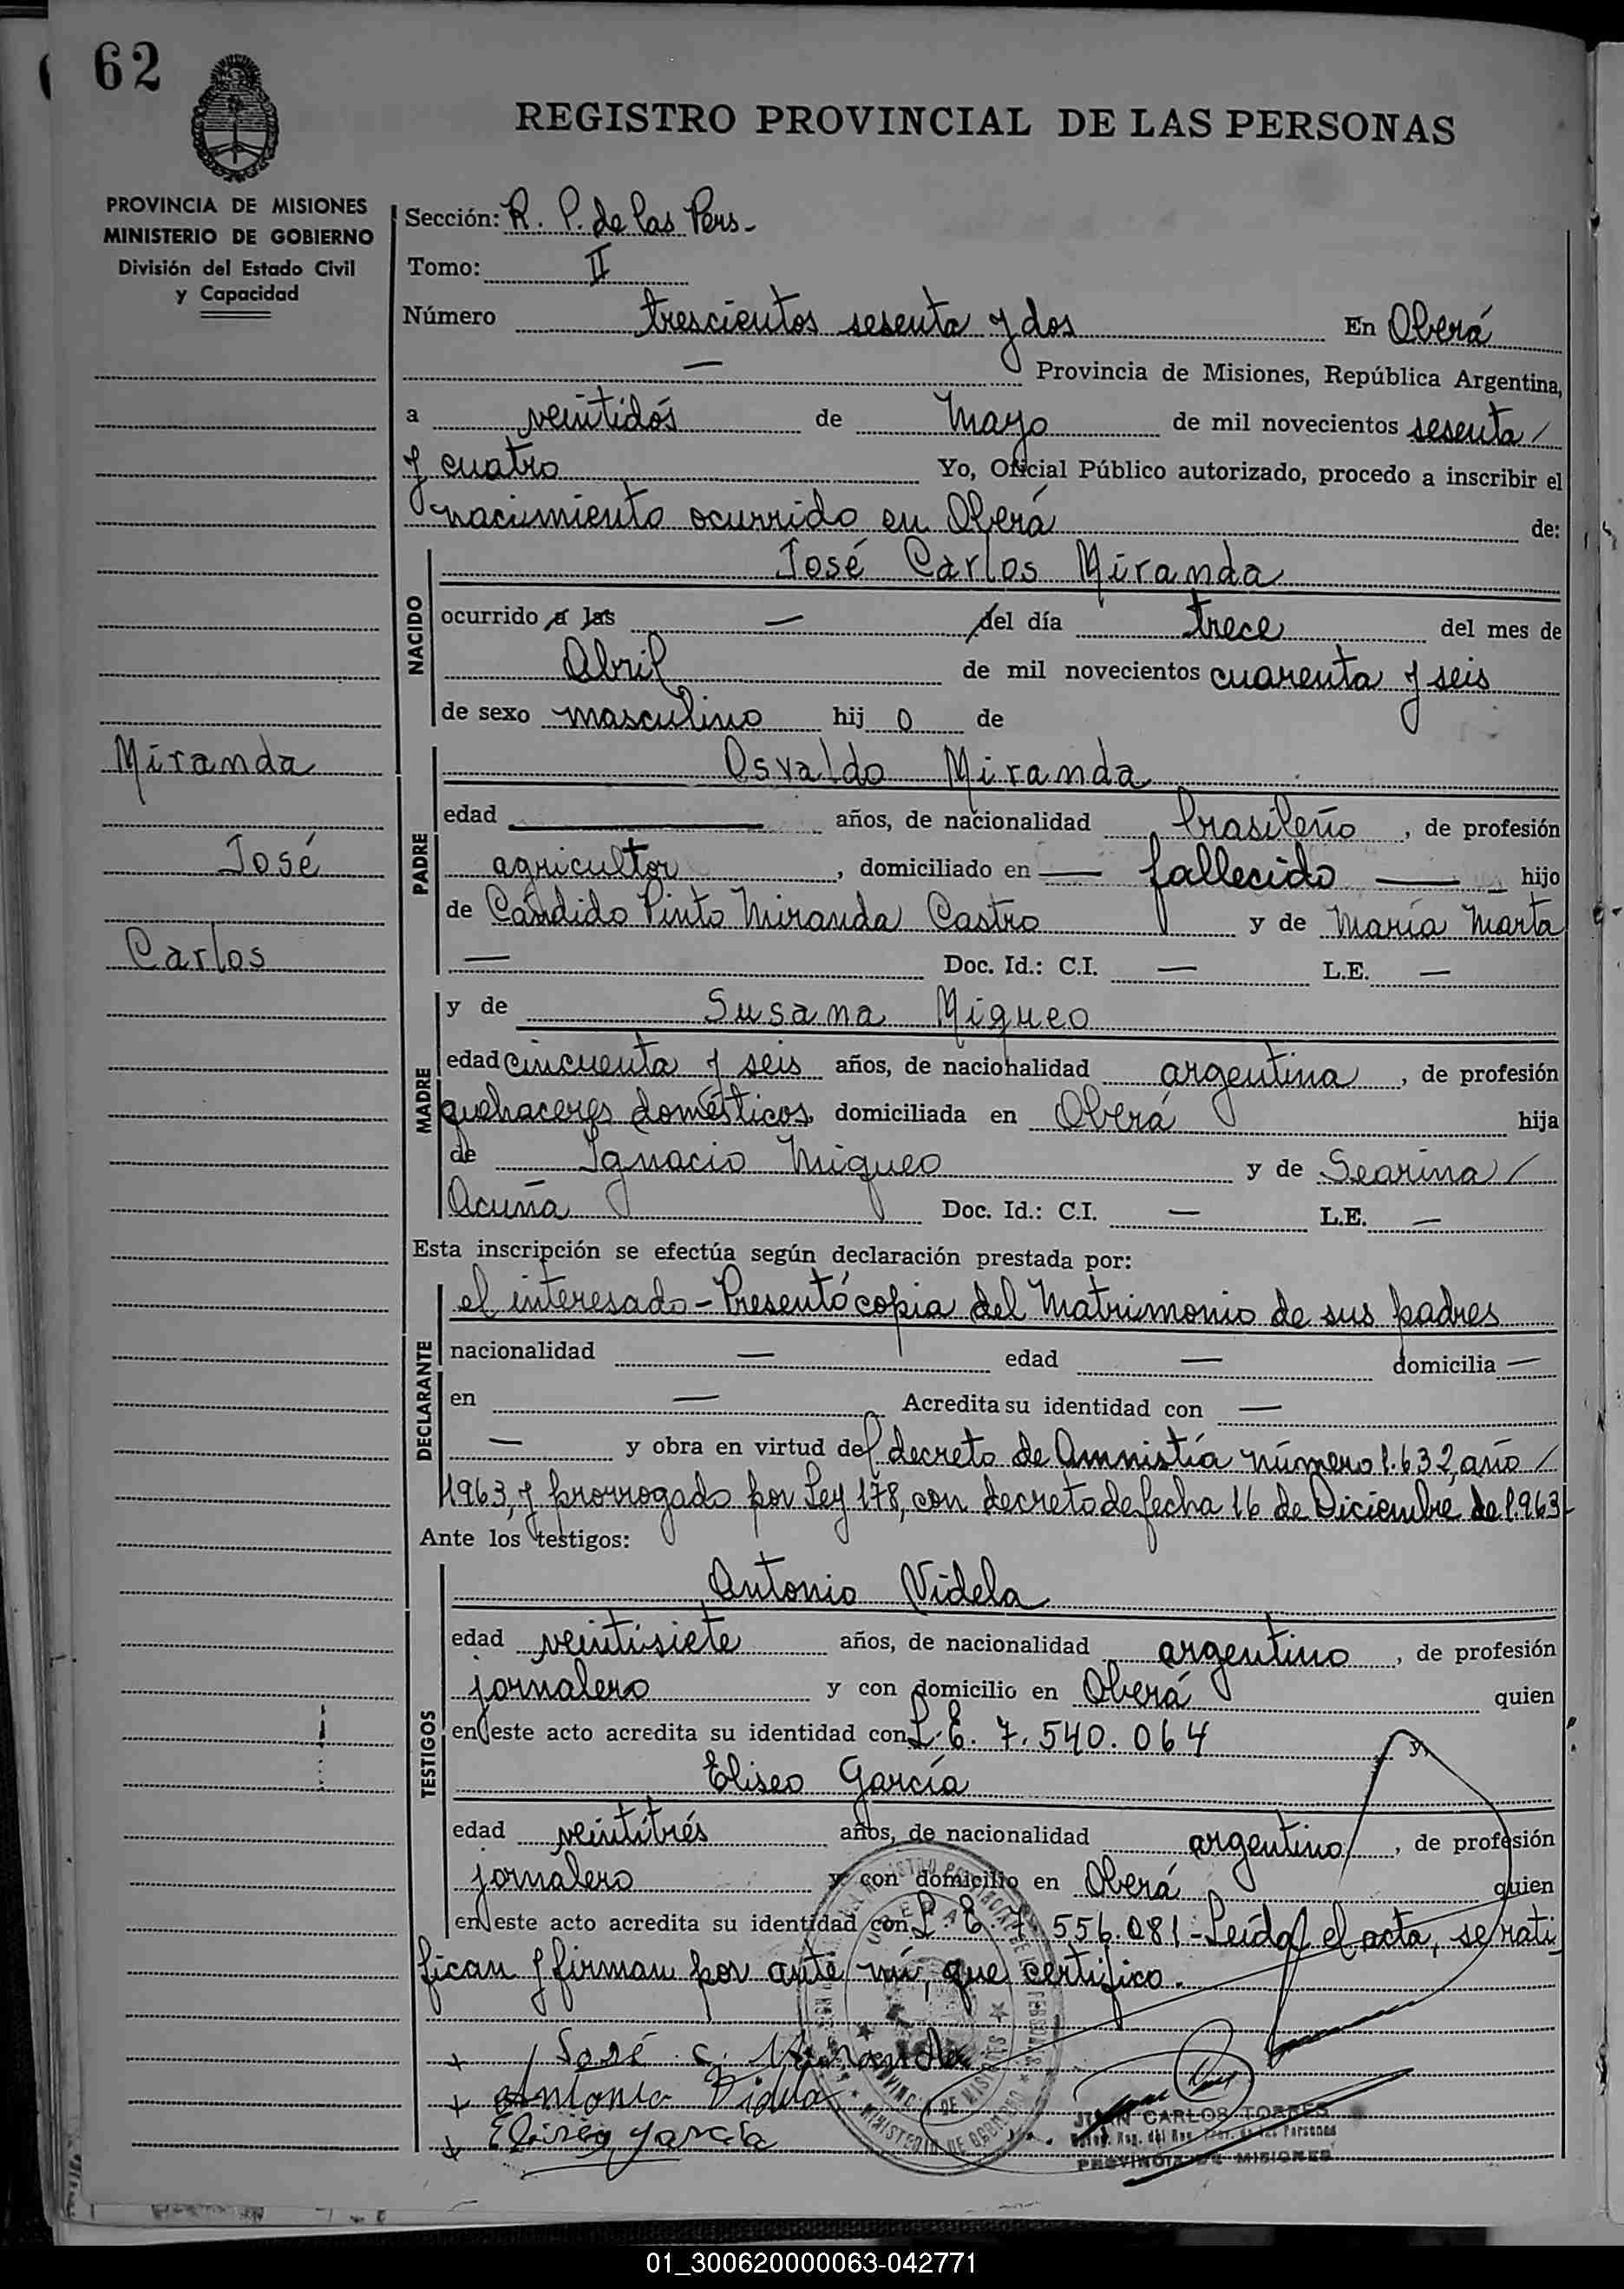 62
REGISTRO PROVINCIAL DE LAS PERSONAS
PROVINCIA DE MISIONES
MINISTERIO DE GOBIERNO
División del Estado Civil
y Capacidad
Sección: R. P. de las Pers.-
Tomo: II
Número trescientos sesenta y dos En Oberá
— Provincia de Misiones, República Argentina,
a veintidós de Mayo de mil novecientos sesenta /
y cuatro Yo, Oficial Público autorizado, procedo a inscribir el
nacimiento ocurrido en Oberá de:
José Carlos Miranda
NACIDO
ocurrido a las — del día trece del mes de
Abril de mil novecientos cuarenta y seis
de sexo masculino hij o de
Miranda
José
Carlos
Osvaldo Miranda
PADRE
edad — años, de nacionalidad brasileño, de profesión
agricultor, domiciliado en — fallecido — hijo
de Cándido Pinto Miranda Castro y de María Marta
— Doc. Id.: C.I. — L.E. —
MADRE
y de Susana Miqueo
edad cincuenta y seis años, de nacionalidad argentina, de profesión
quehaceres domésticos, domiciliada en Oberá hija
de Ignacio Miqueo y de Searina /
Acuña Doc. Id.: C.I. — L.E. —
Esta inscripción se efectúa según declaración prestada por:
DECLARANTE
el interesado - Presentó copia del Matrimonio de sus padres
nacionalidad — edad — domicilia —
en — Acredita su identidad con —
— y obra en virtud del decreto de Amnistía número 1.632, año /
1963, y prorrogado por Ley 178, con decreto de fecha 16 de Diciembre de 1.963-
Ante los testigos:
TESTIGOS
Antonio Videla
edad veintisiete años, de nacionalidad argentino, de profesión
jornalero y con domicilio en Oberá quien
en este acto acredita su identidad con L. E. 7.540.064
Eliseo García
edad veintitrés años, de nacionalidad argentino, de profesión
jornalero y con domicilio en Oberá quien
en este acto acredita su identidad con L. E. 7.556.081 - Leída el acta, se rati
fican y firman por ante mí, que certifico.
+ José C. Miranda
+ Antonio Videla
+ Eliseo García
JUAN CARLOS TORRES
PROVINCIA DE MISIONES
01_300620000063-042771